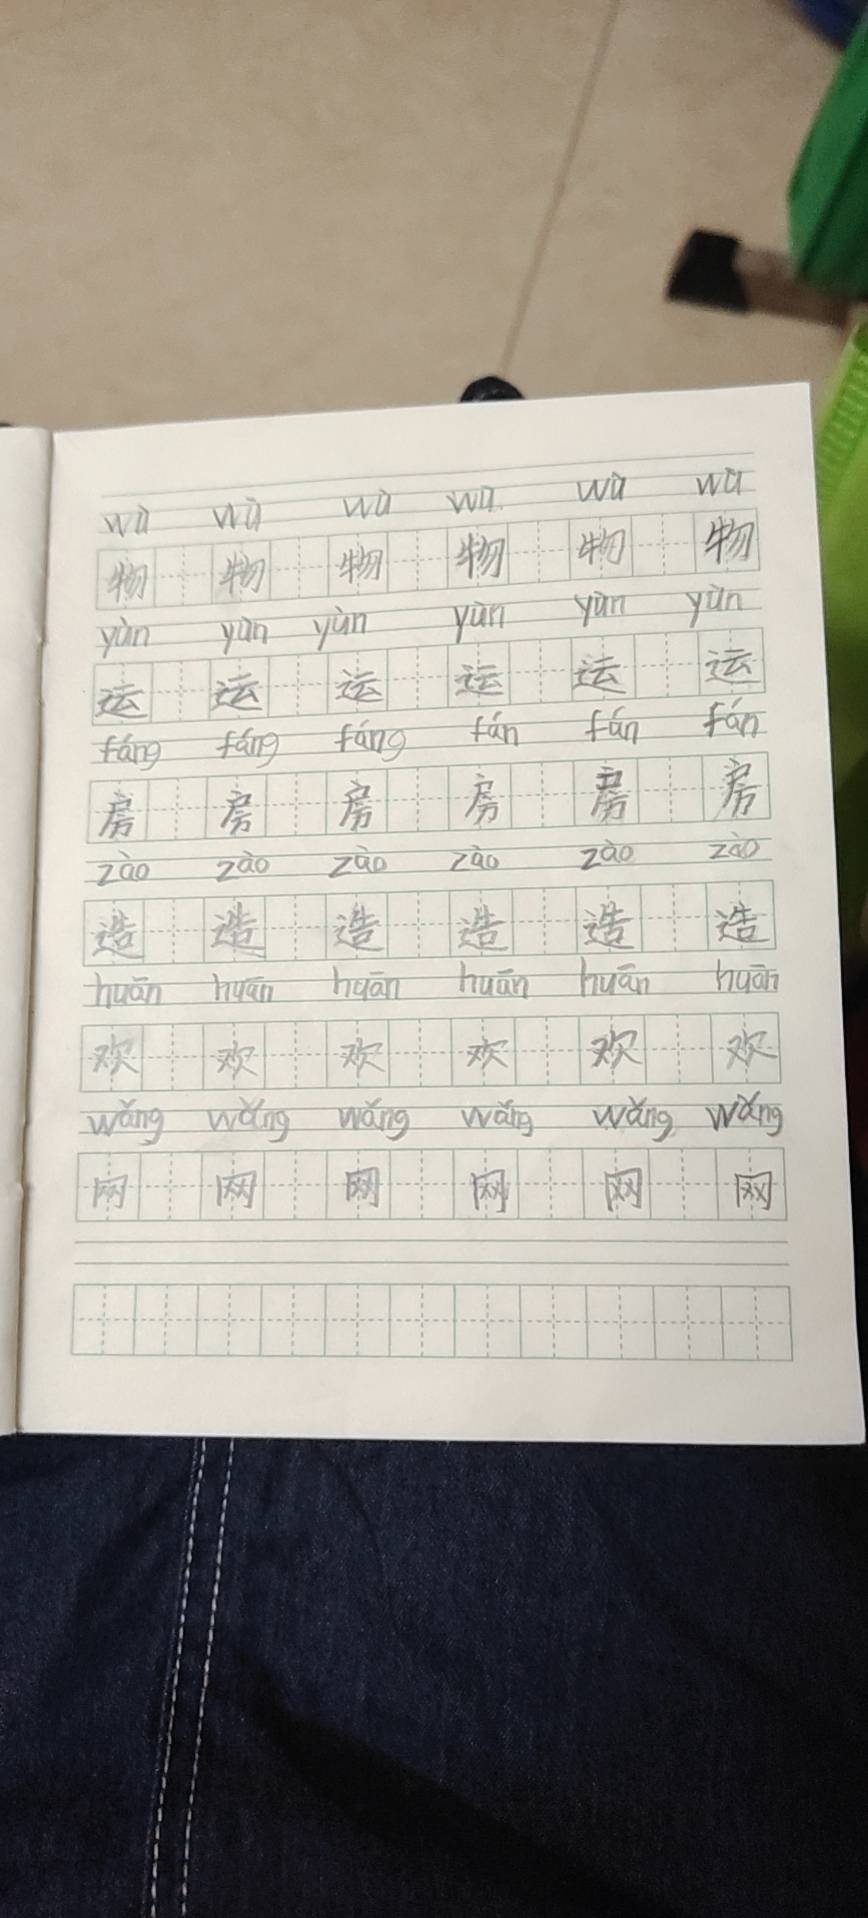 wù wù wù wù wù wù
物 物 物 物 物 物
yùn yùn yùn yùn yùn yùn
运 运 运 运 运 运
fáng fáng fáng fán fán fán
房 房 房 房 房 房
zào zào zào zào zào zào
造 造 造 造 造 造
huān huān huān huān huān huān
欢 欢 欢 欢 欢 欢
wǎng wǎng wǎng wǎng wǎng wǎng
网 网 网 网 网 网